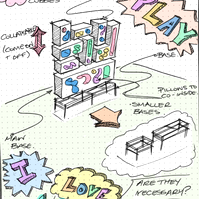 CUBBIES
PLAY
(COME
OFF)
BASE
PILLOWS TO
CO-INSIDE
SMALLER
BASES.
MAIN
BASE.
I LOVE
ARE THEY
NECESSARY?